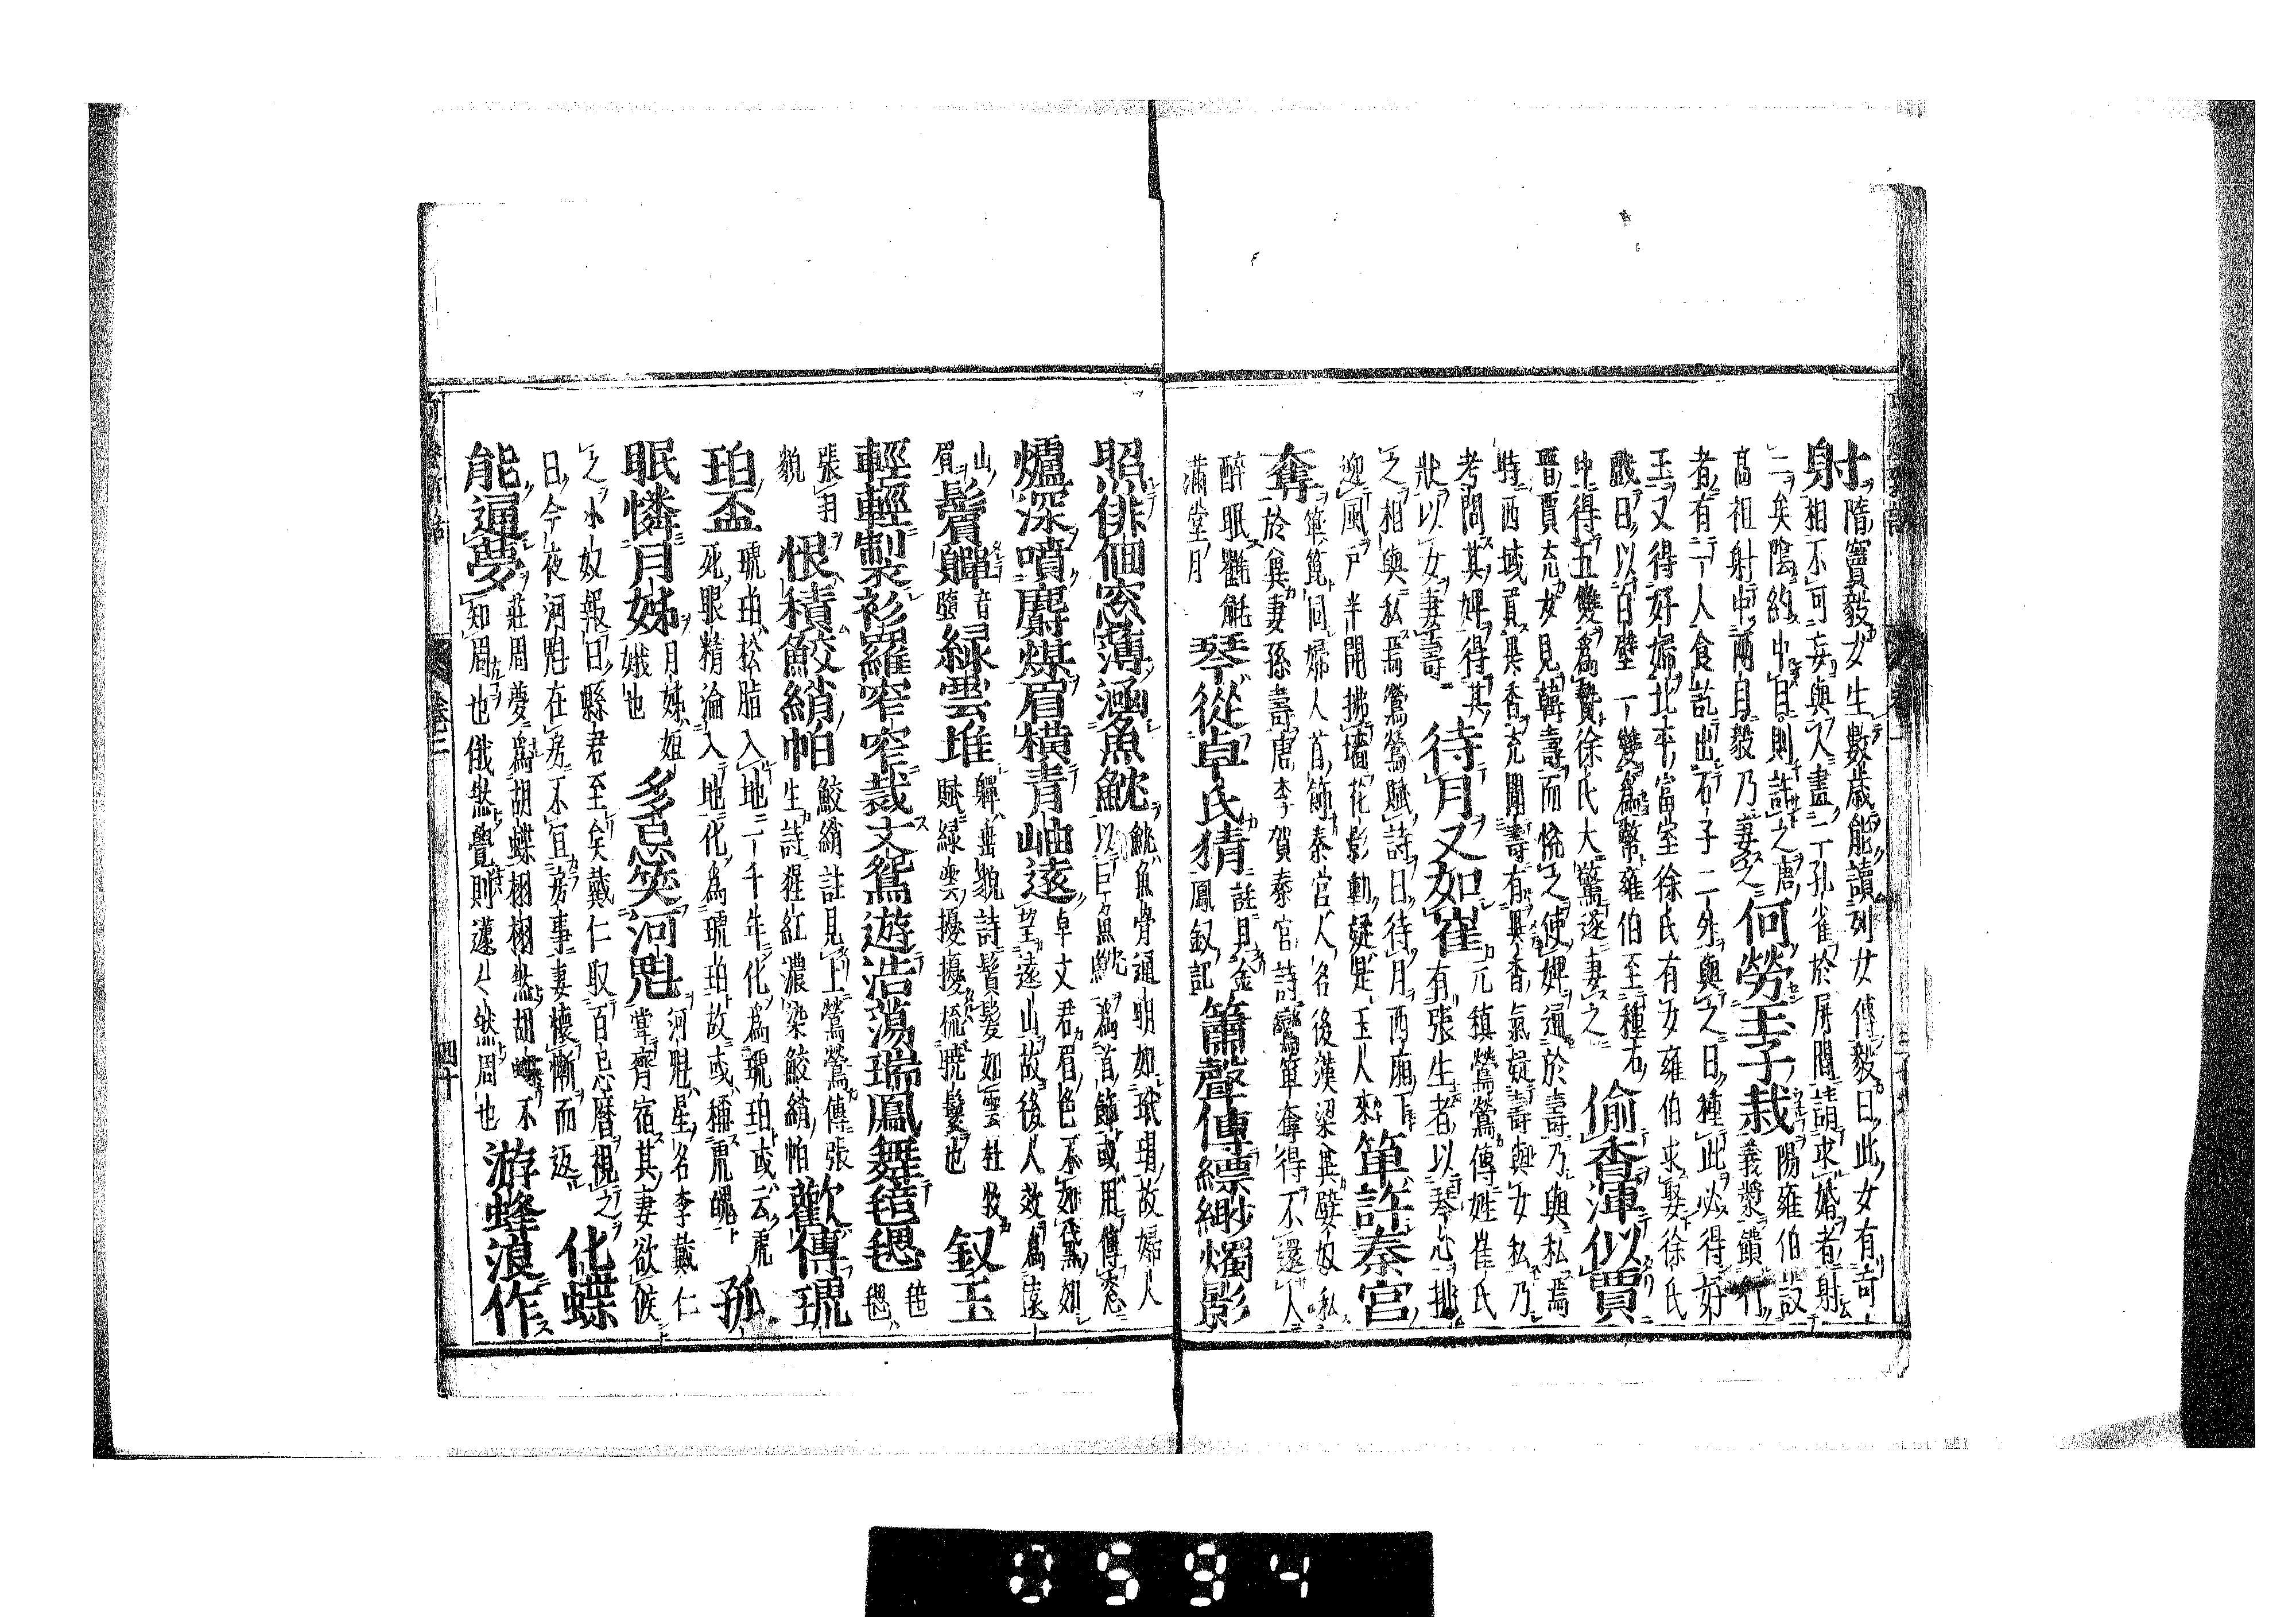 射隋竇毅女生數歳能讀列女傳毅曰此女有奇
相不可妄與人畫二孔雀於屏間請求婚者射
二矣陰約中目則許之唐
高祖射中兩目毅乃妻之何勞玉子栽義漿饋行陽雍伯設
者有一人食訖出石子二升與之曰種此必得好
玉又得好婦北平富室徐氏有女雍伯求娶徐氏
戯曰以白璧一雙爲幣雍伯至種石
中得五雙爲贄徐氏大驚遂妻之偷香渾似賈
晋賈充女見韓壽而悅之使婢通於壽乃與私焉
時西域貢異香充聞壽有異香氣疑壽與女私乃
考問其婢得其
狀以女妻壽待月又如崔元稹鶯鶯傳姓崔氏
有張生者以琴心挑
之相與私焉鶯鶯賦詩曰待月西廂下
迎風戸半開拂墻花影動疑是玉人來箄許秦宮
箄篦同婦人首飾秦宮人名後漢梁冀嬖奴私
奪於冀妻孫壽唐李賀秦宮詩鸞箄奪得不還人
醉眠氍毹
滿堂月琴從卓氏猜註見金
鳳釵記簫聲傳縹緲燭影
照徘徊窓薄涵魚魫魫魚骨通明如玳瑁故婦人
以巨魚魫爲首飾或用傅窓
爐深噴麝煤眉橫青岫遠卓文君眉色不如黛如
望遠山故後人效爲遠
山
眉鬢軃音
隨綠雲堆軃垂貌詩鬢髮如雲杜牧
賦綠雲擾擾梳曉鬟也釵玉
輕輕製衫羅窄窄裁文鴛遊浩蕩瑞鳳舞毰毸毰
毸
張羽
貌恨積鮫綃帕鮫綃註見上鶯鶯傳張
生詩猩紅濃染鮫綃帕歡傳琥
珀盃琥珀松脂入地二千年化爲琥珀或云虎
死眼精淪入地化爲琥珀故或稱虎魄孤
眠憐月姊月姊姮
娥也多忌笑河魁河魁星名李戴仁
掌齊宿其妻欲候
之小奴報曰縣君至矣戴仁取百忌曆視之
曰今夜河魁在房不宜房事妻懷慚而返化蝶
能通夢莊周夢爲胡蝶栩栩然胡蝶不
知周也俄然覺則蘧々然周也游蜂浪作
卷三
四十
0594